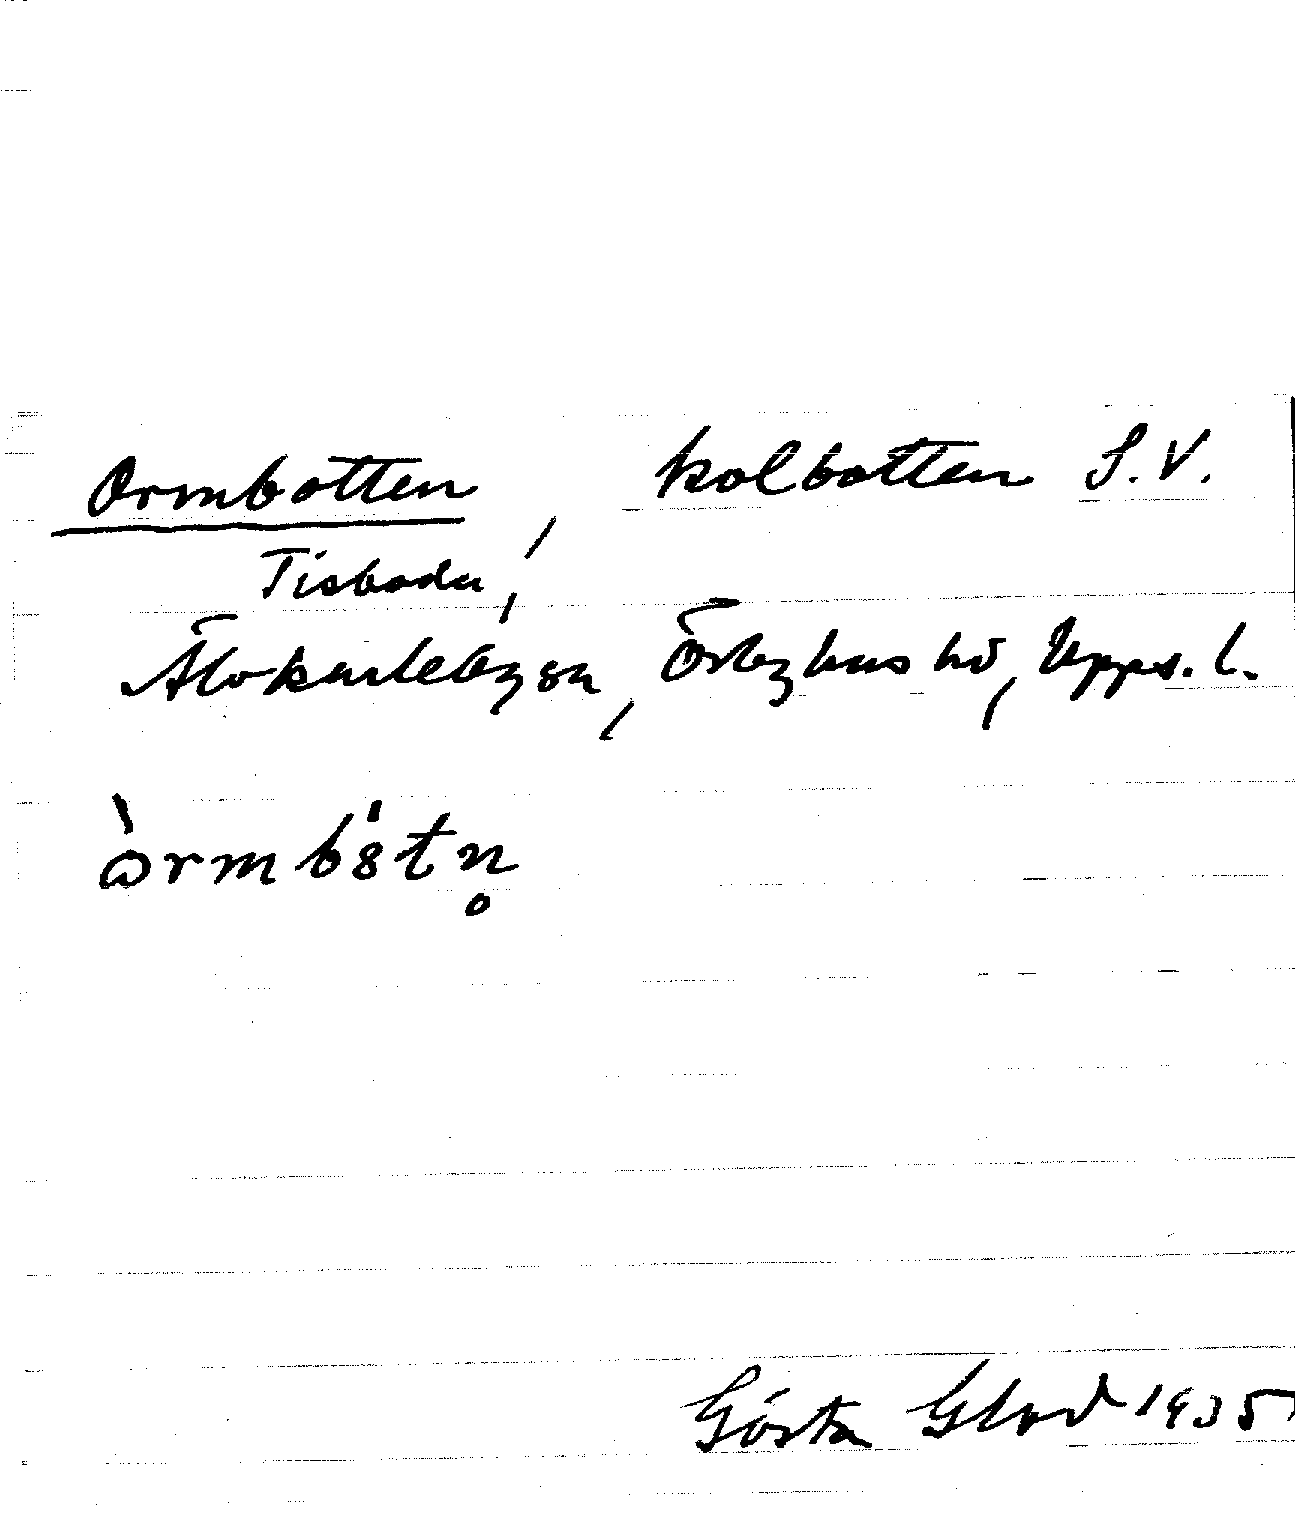 Ormbotten, kolbotten S.V.
Tisboda,
Älvkarleby sn, Örbyhus hd, Upps. l.
òrmbȯtn̥
Gösta Glad 1935